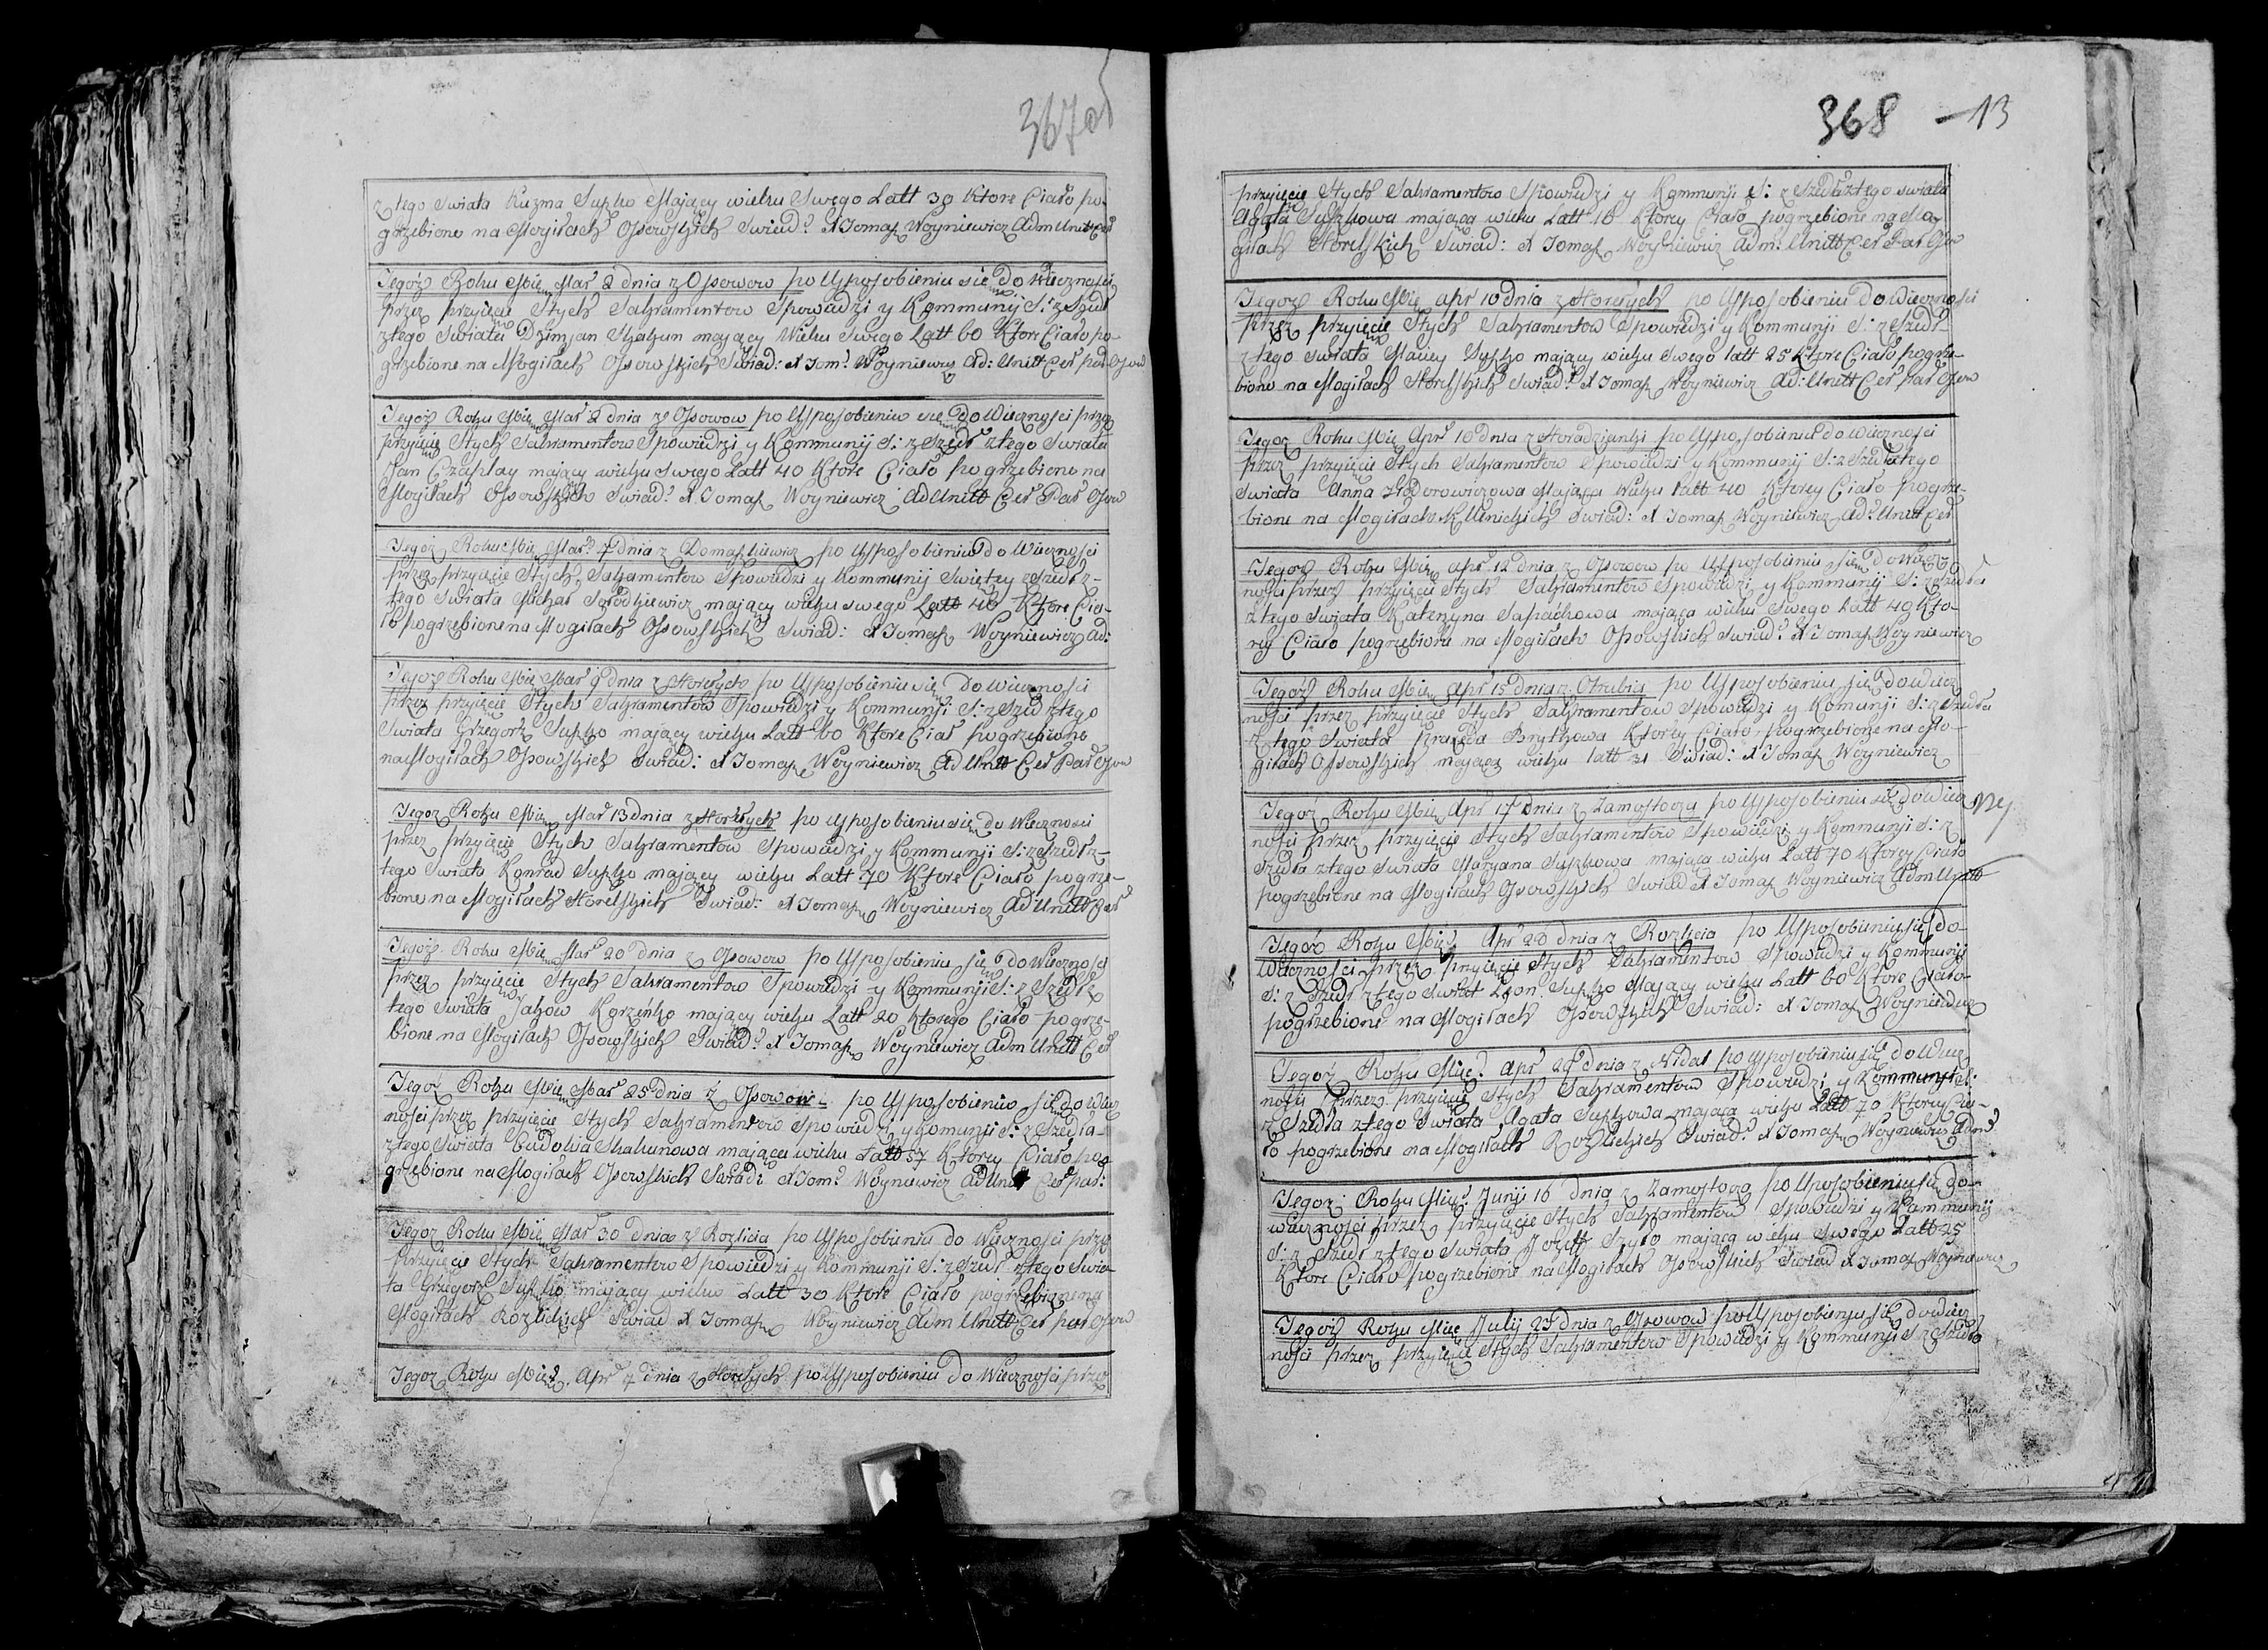 367 об
z tego swiata Kuzma Supko Mający wieku Swego Latt 39 Ktore Ciało po-
grzebione na Mogiłach Ossowskich Swiad: X Tomasz Woyniewicz Adm Unitt Cer
Tegoż Roku Mię Mar 2 dnia z Ossowow po Usposobieniu się do wieczności
przez przyięcie Stych Sakramentow Spowiedzi y Kommunij S: z Szedł
z tego Swiata Dzimjan Skakun mający Wieku Swego Latt 60 Ktore Ciało po-
grzebione na Mogiłach Ossowskich Swiad: X Tom: Woyniewicz Ad: Unitt Cer par Osow
Tegoż Roku Mię Mar 2 dnia z Ossowow po Usposobieniu się do Wieczności przez
przyięcie Stych Sakramentow Spowiedzi y Kommunij S: z Szedł z tego Swiata
Jan Czaplay mający wieku swego Latt 40 Ktore Ciało pogrzebione na
Mogiłach Ossowskich Swiad: X Tomasz Woyniewicz Ad Unitt Cer Par Osow
Tegoż Roku Mię Mar: 7 dnia z Domaszkiewicz po Usposobieniu do Wieczności
przez przyięcie Stych Sakramentow Spowiedzi y Kommunij Swiętey z Szedł z-
tego Swiata Michał mający wieku swego Latt 46 Ktore Cia-
ło pogrzebione na Mogiłach Ossowskich Swiad: X Tomasz Woyniewicz Ad:
Tegoż Roku Mię Mar 9 dnia z Horełych po Usposobieniu się Do Wieczności
przez przyięcie Stych Sakramentow Spowiedzi y Kommunij S: z Szed z tego
Swiata Grzegorz Supko mający wieku Latt 60 Ktore Ciał pogrzebione
na Mogiłach Ossowskich Swiad: X Tomasz Woyniewicz Ad Unitt Cer Par Osow
Tegoż Roku Mię Mar 13 dnia z Horełych po Usposobieniu się do Wieczności
przez przyięcie Stych Sakramentow Spowiedzi y Kommunij S: z Szedł z-
tego Swiata Konrad Supko mający wieku Latt 70 Ktore Ciało pogrze-
bione na Mogiłach Horelskich Swiad: X Tomasz Woyniewicz Ad Unitt Cer
Tegoż Roku Mię Mar 20 dnia z Ossowow po Usposobieniu się do Wieczności
przez przyięcie Stych Sakramentow Spowiedzi y Kommunij S: z Szedł z
tego Swiata Jakow Korzeńko mający wieku Latt 20 Ktorego Ciało pogrze-
bione na Mogiłach Ossowskich Swiad: X Tomasz Woyniewicz Adm Unitt Cer
Tegoż Roku Mię Mar 25 dnia z Ossowow po Usposobieniu się do Wiecz
ności przez przyięcie Stych Sakramentow Spowiedzi y Komunij S: z Szedła-
z tego Swiata Eudokia Skakunowa mająca wieku Latt 57 Ktorey Ciało po-
grzebione na Mogiłach Ossowskich Swiad: X Tom: Woyniewicz Ad Unit Cer par:
Tegoż Roku Mię Mar 30 dnia z Rozlicia po Usposobieniu do Wieczności przez
przyięcie Stych Sakramentow Spowiedzi y Kommunij S: z Szedł z tego Swia-
ta Grzegorz Supko mający wieku Latt 30 Ktore Ciało pogrzebione na
Mogiłach Rozlickich Swiad X Tomasz Woyniewicz Adm Unitt Cer par Osow
Tegoż Roku Mię Apr 7 dnia z Horełych po Usposobieniu do Wieczności przez
368 —13
przyięcie Stych Sakramentow Spowiedzi y Kommunij S: z Szedła z tego swiata
Agata Supkowa mająca wieku Latt 16 Ktorey Ciało pogrzebione na Mo-
giłach Horelskich Swiad: X Tomasz Woyniewicz Adm: Unitt Cer Par Osow
Tegoż Roku Mię Apr 10 dnia z Horełych po Usposobieniu do Wieczności
przez przyięcie Stych Sakramentow Spowiedzi y Kommunij S: z Szedł-
z tego swiata Maciey Supko mający wieku swego latt 25 Ktore Ciało pogrze-
bione na Mogiłach Horelskich Swiad: X Tomasz Woyniewicz Ad: Unitt Cer Par Osow
Tegoż Roku Mię Apr 10 dnia z Horadzianki po Usposobieniu do Wieczności
przez przyięcie Stych Sakramentow Spowiedzi y Kommunij S: z Szedła z tego
Swiata Anna Mająca Wieku latt 40 Ktorey Ciało pogrze-
bione na Mogiłach Swiad: X Tomasz Woyniewicz Ad: Unitt Cer
Tegoż Roku Mię Apr 12 dnia z Ossowow po Usposobieniu się do Wiecz-
ności przez przyięcie Stych Sakramentow Spowiedzi y Kommunij S: z Szedła
z tego Swiata Katerzyna Sapachowa mająca wieku Swego Latt 49 Kto-
rey Ciało pogrzebione na Mogiłach Ossowskich Swiad: X Tomasz Woyniewicz
Tegoż Roku Mię Apr 15 dnia z Otrubia po Usposobieniu się do Wiecz
ności przez przyięcie Stych Sakramentow Spowiedzi y Komunij S: z Szedła
z tego Swiata Praxeda Brytkowa Ktorey Ciało pogrzebione na Mo-
giłach Ossowskich mająca wieku latt 31 Swiad: X Tomasz Woyniewicz
Tegoż Roku Mię Apr 17 dnia z Zamostocza po Usposobieniu się do Wiecz
ności przez przyięcie Stych Sakramentow Spowiedzi y Kommunij S: z
Szedła z tego Swiata Maryana Supkowa mająca wieku Latt 70 Ktorey Ciało
pogrzebione na Mogiłach Ossowskich Swiad X Tomasz Woyniewicz Adm Unitt
Tegoż Roku Mię Apr 20 dnia z Rozlicia po Usposobieniu się do-
Wieczności przez przyięcie Stych Sakramentow Spowiedzi y Kommunij
S: z Szedł z tego Swiat Leon Supko Mający wieku Latt 60 Ktore Ciało-
pogrzebione na Mogiłach Ossowskich Swiad: X Tomasz Woyniewicz
Tegoż Roku Mię: Apr 29 dnia z Nidal po Usposobieniu się do Wiecz
ności przez przyięcie Stych Sakramentow Spowiedzi y Kommunij S:
z Szedła z tego Swiata Agata Supkowa mająca wieku Latt 70 Ktorey Cia-
ło pogrzebione na Mogiłach Rozlickich Swiad: X Tomasz Woyniewicz Adm
Tegoż Roku Mię: Junij 16 dnia z Zamostocza po Usposobieniu się do-
wieczności przez przyięcie Stych Sakramentow Spowiedzi y Kommunij
S: z Szedł z tego Swiata Jozeff Szyło mająca wieku Swego Latt 25
Ktore Ciało pogrzebione na Mogiłach Ossowskich Swiad X Tomasz Woyniewicz
Tegoż Roku Mię Julij 29 dnia z Ossowow po Usposobieniu się do Wiecz
ności przez przyięcie Stych Sakramentow Spowiedzi y Kommunij S z Szedła